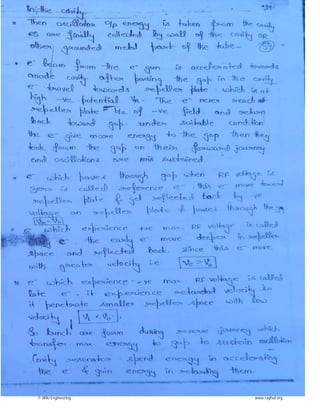 in the cavity.
Then oscillator o/p energy is taken from the cavity
es are finally collected by wall of the cavity or
other grounded metal part of the tube -
e⁻ beam from the e⁻ gun is accelerated towards
anode cavity. after passing the gap in the cavity
e⁻ travel towards repeller plate which is at
high -ve potential VR. The e⁻ never reach
repeller plate of -ve field and return
back toward gap under suitable condition
the e⁻ give more energy to the gap then they
took from the gap on their forward journey
and oscillations are sustained.
e⁻ which passes through gap when RF voltage is
zero is called reference e⁻ this e⁻ move toward
repeller plate & get reflected back by -ve
voltage on repeller plate & passes through the gap
which experience +ve max. RF voltage is called
the early e⁻ move deeper in repeller
space and reflected back. Since this e⁻ move
with greater velocity i.e
e⁻ which experience -ve max RF voltage is called
late e⁻. it experience retarded velocity so
it penetrate smaller repeller space with low
velocity
So bunch are form during reverse journey which
transfer max energy to gap to sustain oscillation
Cavity resonator spend energy in accelerating
the e⁻ & gain energy in retarding them.
© BBQ Engineering www.raghul.org